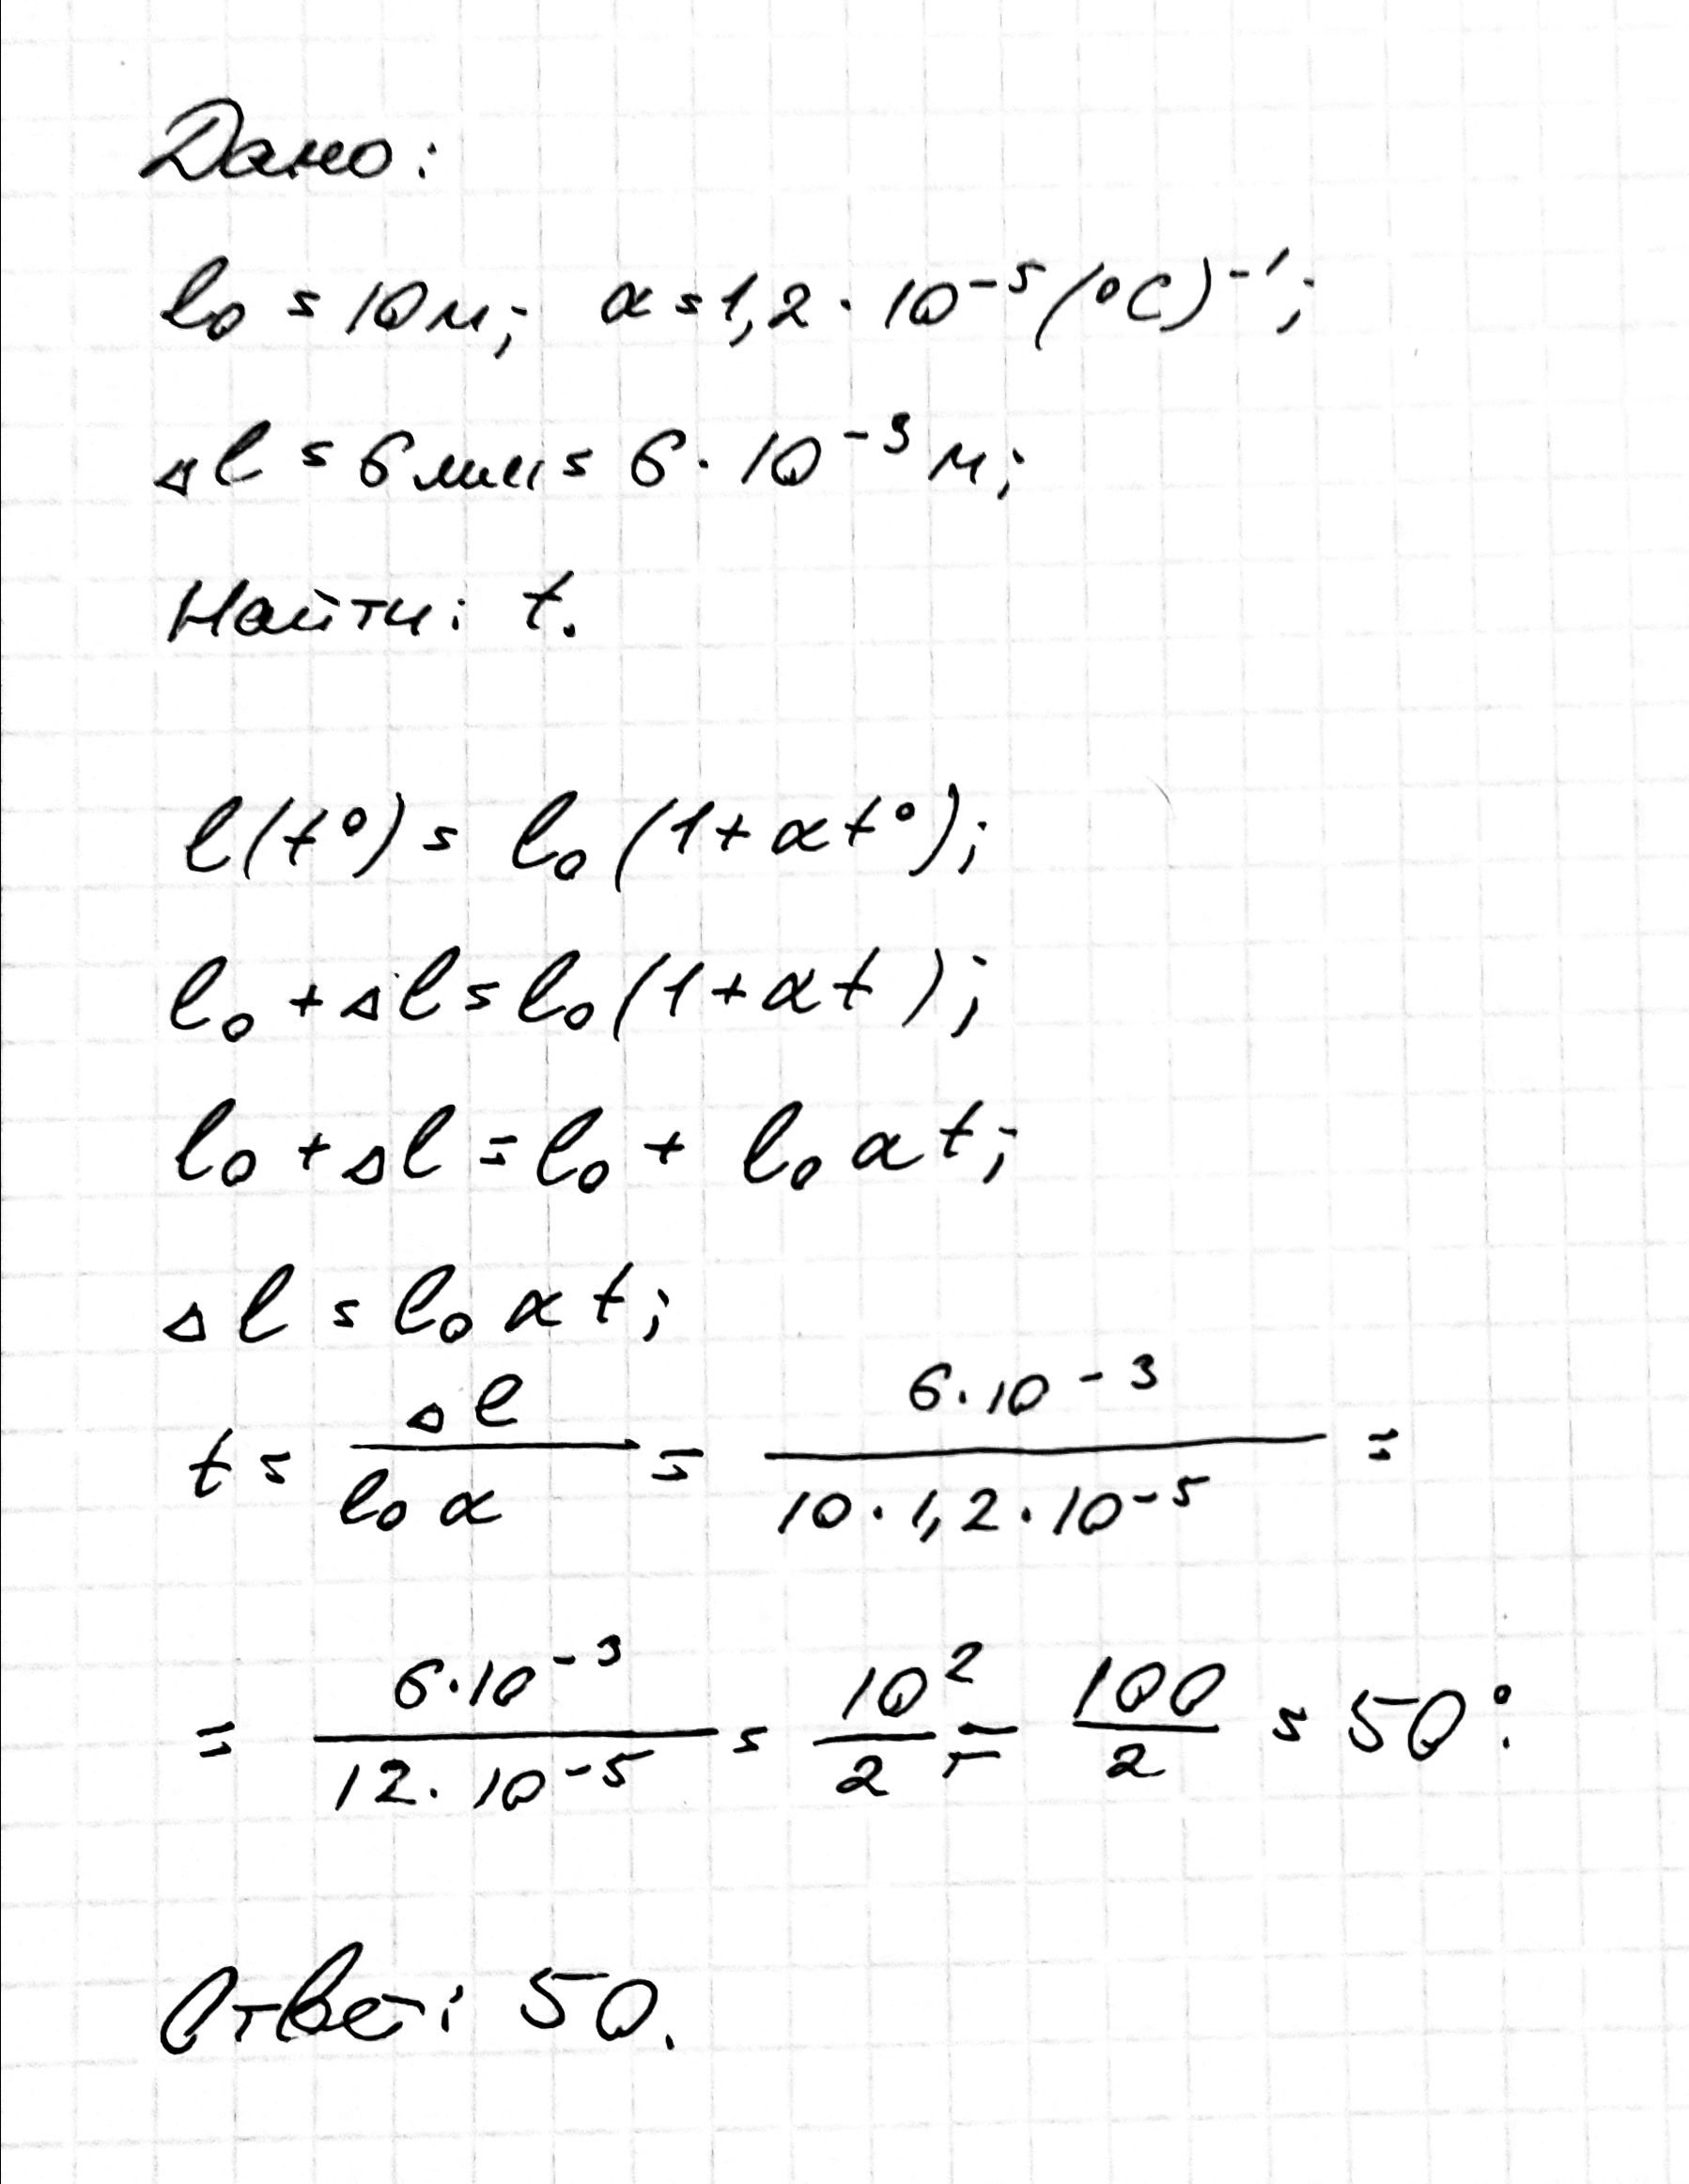 Дано:
l₀ = 10 м; α = 1,2 · 10⁻⁵ (°C)⁻¹;
Δl = 6 мм = 6 · 10⁻³ м;
Найти: t.
l(t°) = l₀ (1 + αt°);
l₀ + Δl = l₀ (1 + αt);
l₀ + Δl = l₀ + l₀ αt;
Δl = l₀ αt;
t = Δl / (l₀ α) = (6 · 10⁻³) / (10 · 1,2 · 10⁻⁵) =
= (6 · 10⁻³) / (12 · 10⁻⁵) = 10² / 2 = 100 / 2 = 50°.
Ответ: 50.